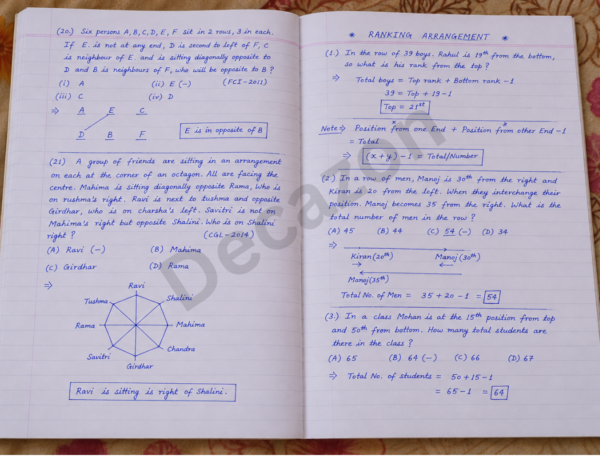 (20.) Six persons A, B, C, D, E, F sit in 2 rows, 3 in each.
If E is not at any end, D is second to left of F, C
is neighbour of E. and is sitting diagonally opposite to
D and B is neighbours of F, who will be opposite to B ?
(i) A (ii) E (-) (FCI-2011)
(iii) C (iv) D
⇒ A E C
D B F
E is in opposite of B
(21) A group of friends are sitting in an arrangement
on each at the corner of an octagon. All are facing the
centre. Mahima is sitting diagonally opposite Rama, Who is
on rushma's right. Ravi is next to tushma and opposite
Girdhar, who is on charsha's left. Savitri is not on
Mahima's right but opposite Shalini. Who is on Shalini
right ? (CGL-2014)
(A) Ravi (-) (B) Mahima
(C) Girdhar (D) Rama
⇒
Ravi
Tushma Shalini
Rama Mahima
Savitri Chandra
Girdhar
Ravi is sitting is right of Shalini.
* RANKING ARRANGEMENT *
(1.) In the row of 39 boys. Rahul is 19th from the bottom,
so what is his rank from the top ?
⇒ Total boys = Top rank + Bottom rank -1
39 = Top + 19-1
Top = 21st
Note ⇒ Position from one End + Position from other End -1
= Total
⇒ (x+y) -1 = Total/Number
(2.) In a row of men, Manoj is 30th from the right and
Kiran is 20 from the left. When they interchange their
position. Manoj becomes 35 from the right. What is the
total number of men in the row ?
(A) 45 (B) 44 (C) 54 (-) (D) 34
⇒
Kiran(20th) Manoj(30th)
Manoj(35th)
Total No. of Men = 35 + 20 -1 = 54
(3.) In a class Mohan is at the 15th position from top
and 50th from bottom. How many total students are
there in the class ?
(A) 65 (B) 64 (-) (C) 66 (D) 67
⇒ Total No. of students = 50 + 15 -1
= 65 -1 = 64
Decaron